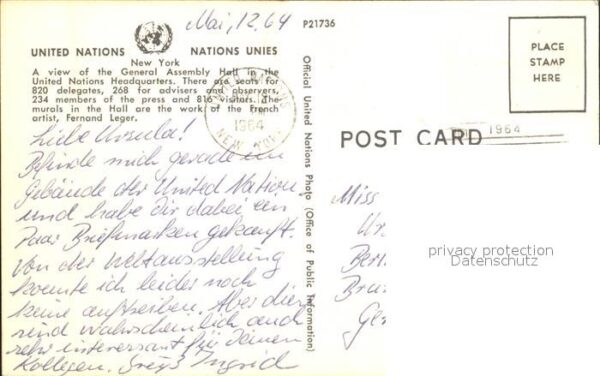 Mai, 12. 64
P21736
UNITED NATIONS NATIONS UNIES
New York
A view of the General Assembly Hall in the
United Nations Headquarters. There are seats for
820 delegates, 268 for advisers and observers,
234 members of the press and 816 visitors. The
murals in the Hall are the work of the French
artist, Fernand Leger.
PLACE
STAMP
HERE
UNITED NATIONS
1964
NEW YORK
POST CARD
1964
Official United Nations Photo (Office of Public Information)
Liebe Ursula!
Befinde mich gerade im
Gebäude der United Nation,
und habe dir dabei ein
paar Briefmarken gekauft.
Von der Weltausstellung
konnte ich leider noch
keine auftreiben. Aber diese
sind wahrscheinlich auch
sehr interessant für deinen
Kollegen. Ingrid
Miss
privacy protection
Datenschutz